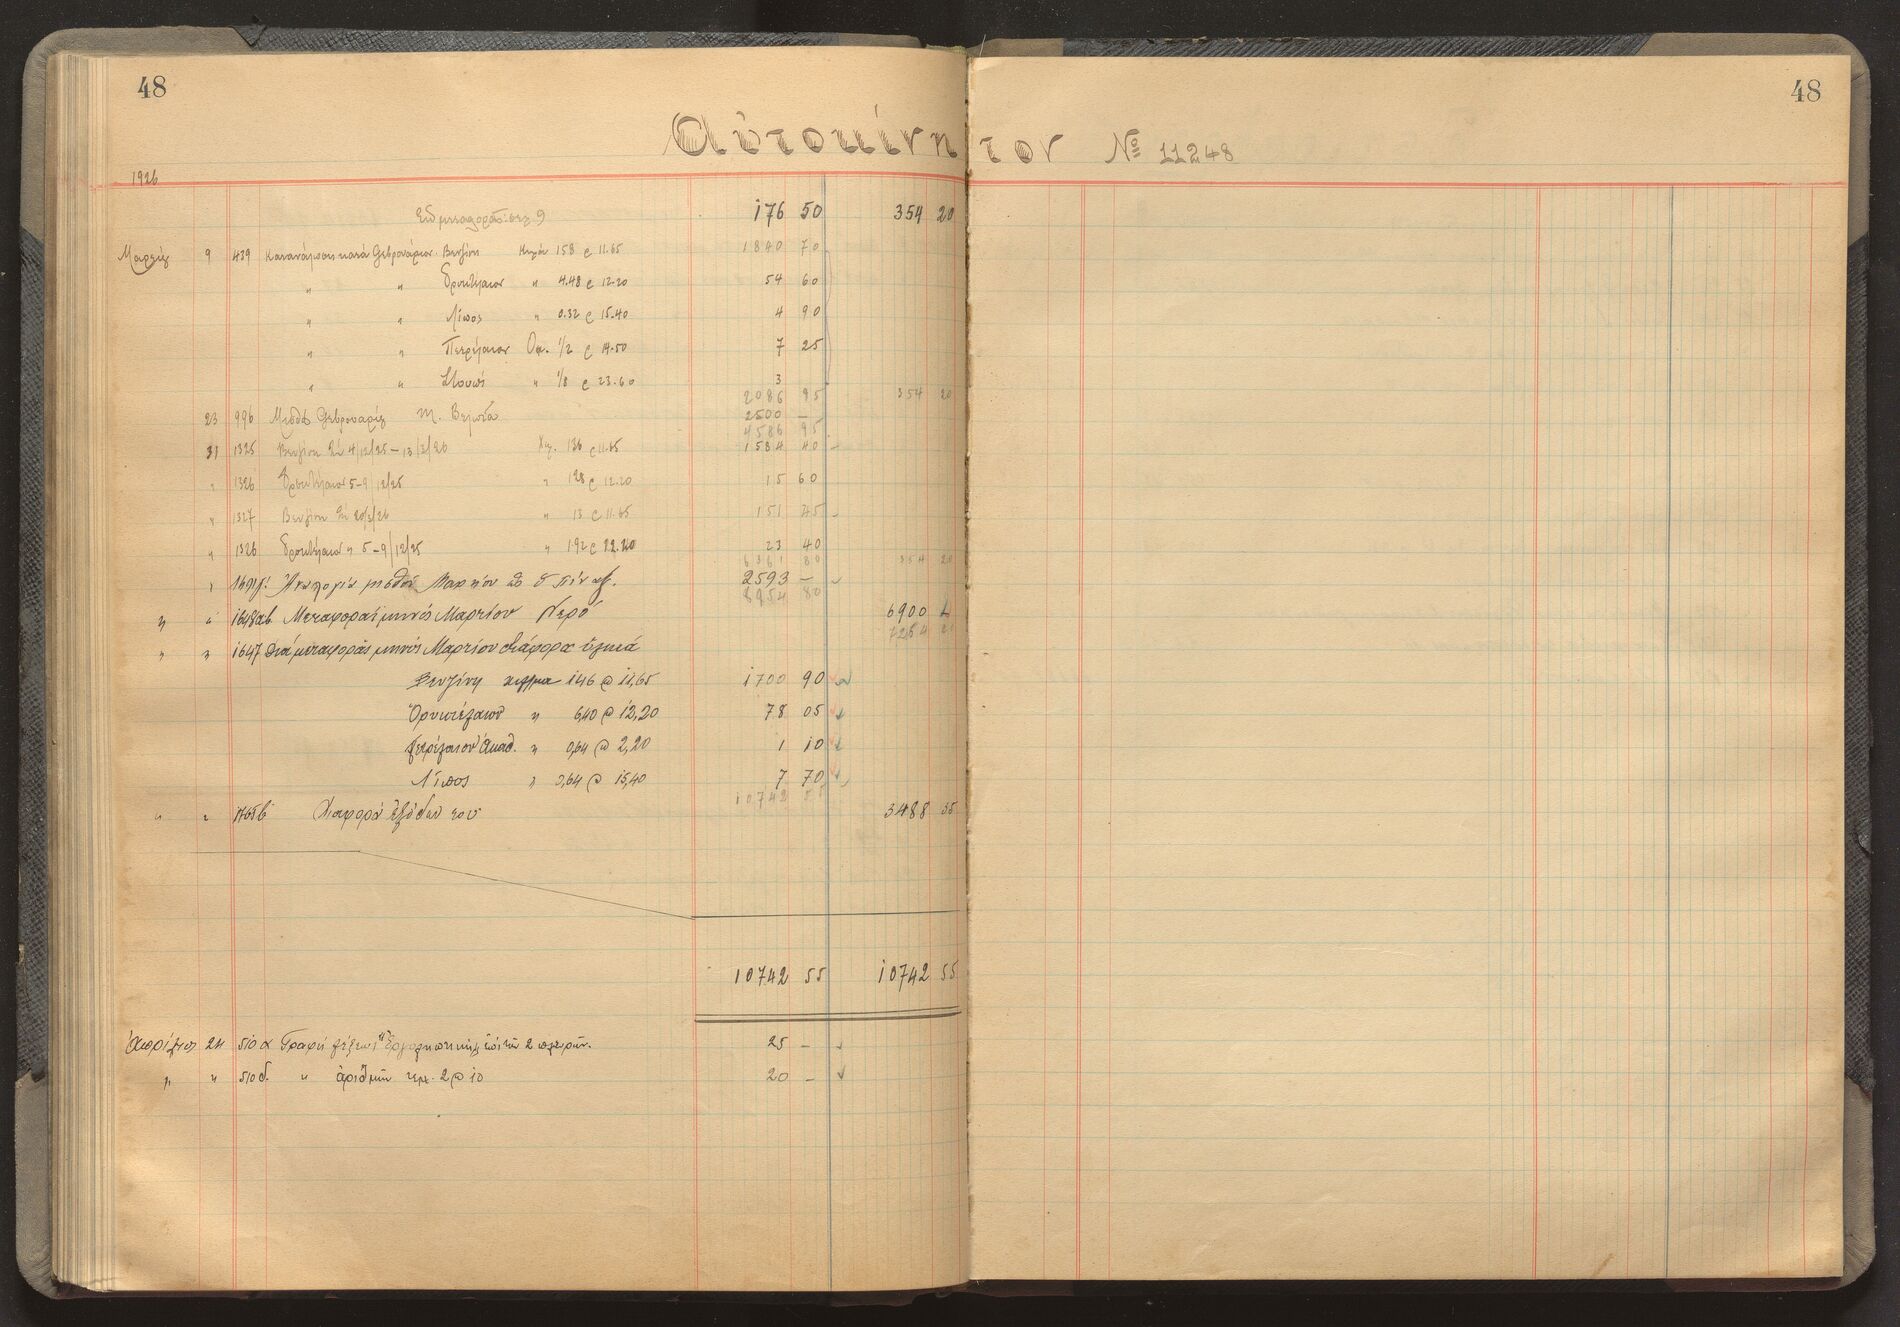 48
48
Αὐτοκίνητον Nº 11248
1926
Ἐκ μεταφορᾶς σελ 9 176 50 354 20
Μαρτίου 9 439 Κατανάλωσις κατὰ Φεβρουάριον Βενζίνη 158 @ 11.65 1840 70
" " Ὀρυκτέλαιον " 4.48 @ 12.20 54 60
" " Λίπος " 0.32 @ 15.40 4 90
" " Πετρέλαιον Ὀκ. 1/2 @ 14.50 7 25
" " Στουπί " 1/8 @ 23.60 3
2086 95 354 20
23 996 Μισθὸς Φεβρουαρίου 2500 —
4586 95
31 1325 Βενζίνη 4/12/25 – 13/2/26 136 @ 11.65 1584 40
" 1326 Ὀρυκτέλαιον 5-9/12/25 " 128 @ 12.20 15 60
" 1327 Βενζίνη 20/2/26 " 13 @ 11.65 151 45
" 1326 Ὀρυκτέλαιον " 5-9/12/25 " 1.92 @ 12.20 23 40
6361 80 354 20
" Ἀναλογία μισθοῦ Μαρτίου 2593 —
8954 80
" " 1648αβ Μεταφοραὶ μηνὸς Μαρτίου Νερό 6900
7254 20
" " 1647 Διὰ μεταφορὰς μηνὸς Μαρτίου διάφορα ὑλικά
Βενζίνη χιλγμα 146 @ 11,65 1700 90
Ὀρυκτέλαιον " 6,40 @ 12,20 78 05
Πετρέλαιον Ἀκαθ. " 0,64 @ 2,20 1 10
Λίπος " 0,64 @ 15,40 7 70
10742 55
" " 1765β Διαφορὰ ἐξόδων του 3488 35
10742 55 10742 55
Ἀπρίλιος 24 510α Γραφὴ λέξεως "Ἐργοληπτικὴ" ἐπὶ τῶν 2 πλευρῶν. 25 —
" " 510δ. " ἀριθμῶν τεμ. 2 @ 10 20 —